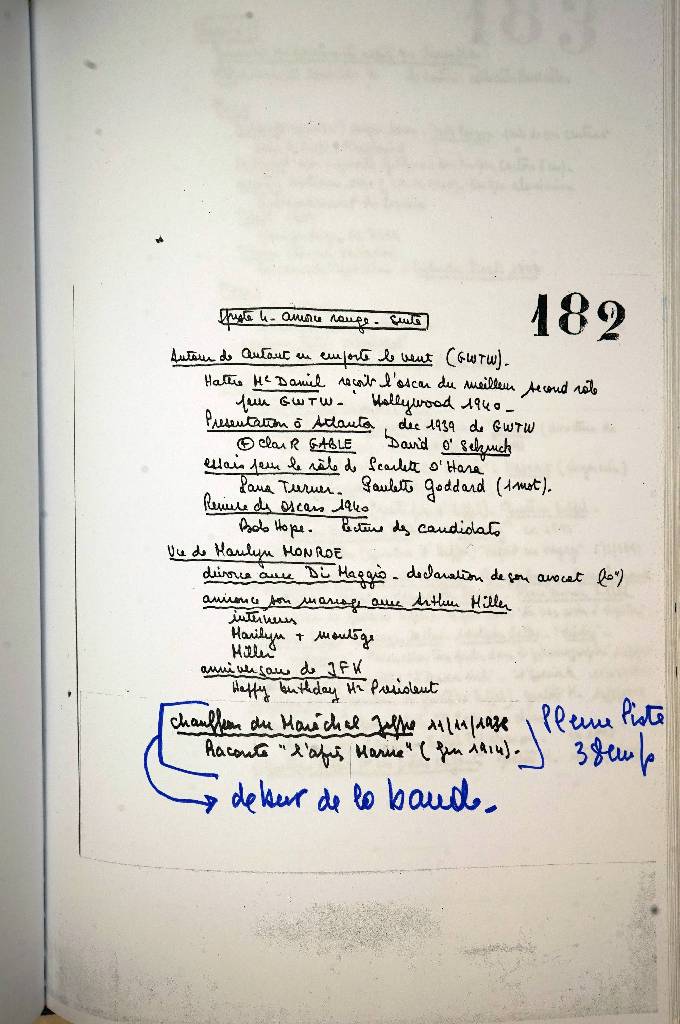 182
piste 4 - amorce rouge - suite
Autour de Autant en emporte le vent (GWTW).
Hattie Mc Daniel reçoit l'oscar du meilleur second rôle
pour GWTW - Hollywood 1940 -
Présentation à Atlanta, dec 1939 de GWTW
Clark GABLE David O' Selznick
essais pour le rôle de Scarlett O'Hara
Lana Turner. Paulette Goddard (1 mot).
Remise des oscars 1940
Bob Hope. lecture des candidats
Vie de Marilyn MONROE
divorce avec Di Maggio - declaration de son avocat (10")
annonce son mariage avec Arthur Miller
interviews
Marilyn + montage
Miller
anniversaire de JFK
Happy birthday Mr President
chauffeur du Maréchal Joffre 11/11/1938
Raconte "l'après Marne" (fin 1914).
Pleine Piste
38 cm/s
début de la bande.